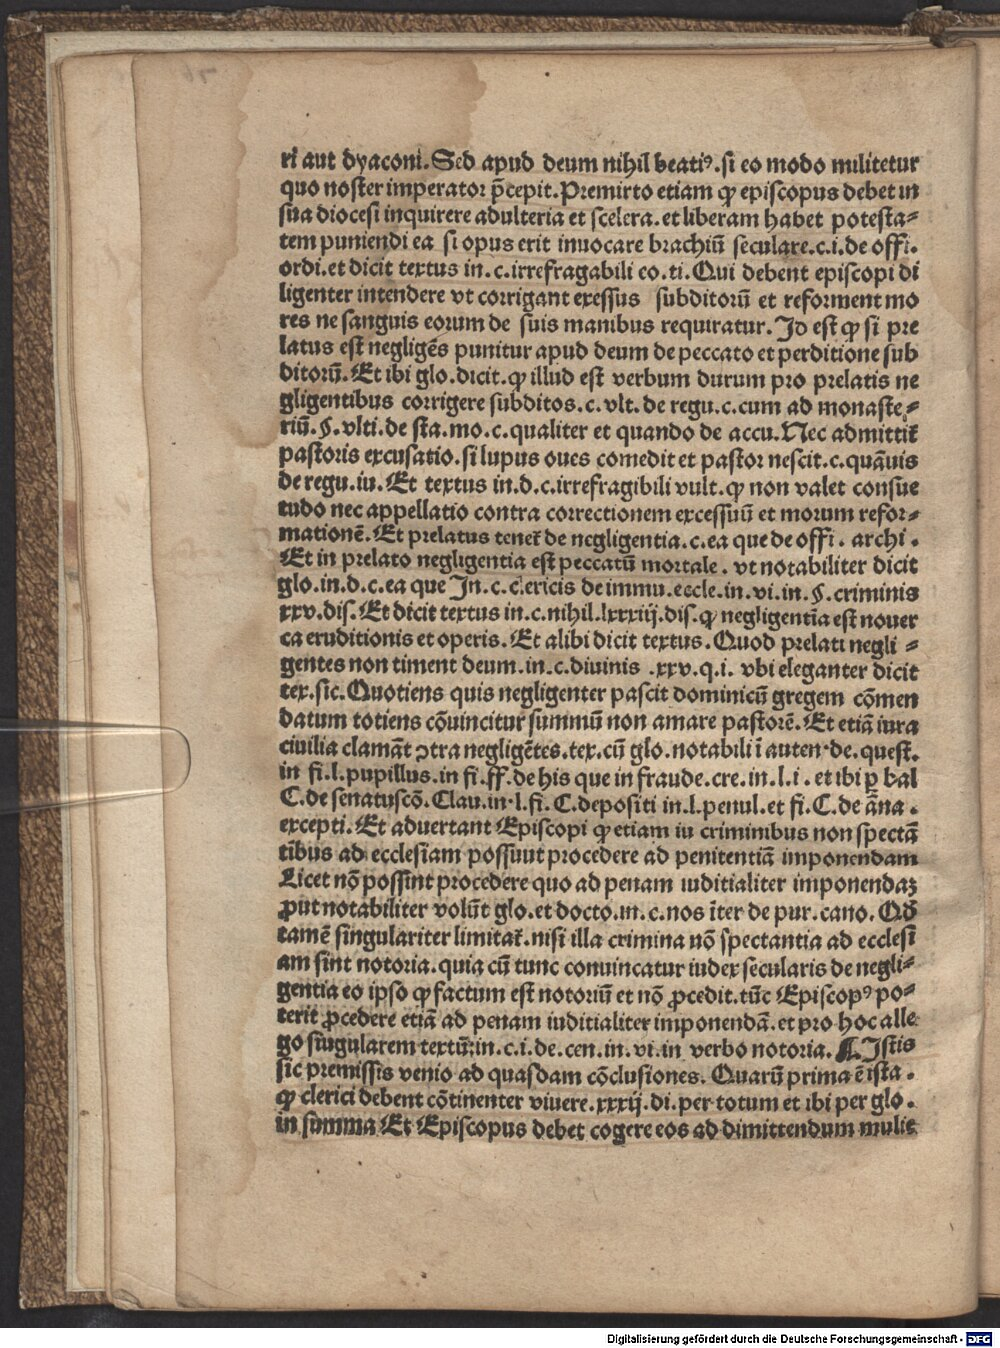 ri aut dyaconi. Sed apud deum nihil beatiꝰ. si eo modo militetur
quo noster imperator p̄cepit. Premitto etiam ꝙ episcopus debet in
sua diocesi inquirere adulteria et scelera. et liberam habet potesta⸗
tem puniendi ea si opus erit inuocare brachiū seculare. c. i. de offi.
ordi. et dicit textus in. c. irrefragabili eo. ti. Qui debent episcopi di
ligenter intendere vt corrigant exessus subditorū et reforment mo
res ne sanguis eorum de suis manibus requiratur. Id est ꝙ si pre
latus est negligēs punitur apud deum de peccato et perditione sub
ditorū. Et ibi glo. dicit. ꝙ illud est verbum durum pro prelatis ne
gligentibus corrigere subditos. c. vlt. de regu. c. cum ad monaste⸗
riū. §. vlti. de sta. mo. c. qualiter et quando de accu. Nec admittit̄
pastoris excusatio. si lupus oues comedit et pastor nescit. c. quāuis
de regu. iu. Et textus in. d. c. irrefragibili vult. ꝙ non valet consue
tudo nec appellatio contra correctionem excessuū et morum refor⸗
mationē. Et prelatus tenet̄ de negligentia. c. ea que de offi. archi.
Et in prelato negligentia est peccatū mortale. vt notabiliter dicit
glo. in. d. c. ea que In. c. clericis de immu. eccle. in. vi. in. §. criminis
xxv. dis. Et dicit textus in. c. nihil. lxxxiij. dis. ꝙ negligentia est nouer
ca eruditionis et operis. Et alibi dicit textus. Quod prelati negli⸗
gentes non timent deum. in. c. diuinis .xxv. q. i. vbi eleganter dicit
tex. sic. Quotiens quis negligenter pascit dominicū gregem cōmen
datum totiens cōuincitur summū non amare pastorē. Et etiā iura
ciuilia clamāt ↄtra negligētes. tex. cū glo. notabili ī auten. de. quest.
in fi. l. pupillus. in fi. ff. de his que in fraude. cre. in. l. i. et ibi ꝑ bal
C. de senatuscō. Clau. in. l. fi. C. depositi in. l. penul. et fi. C. de āna.
excepti. Et aduertant Episcopi ꝙ etiam iu criminibus non spectā
tibus ad ecclesiam possuut procedere ad penitentiā imponendam
Licet nō possint procedere quo ad penam iuditialiter imponendaꝫ
ꝓut notabiliter volūt glo. et docto. in. c. nos īter de pur. cano. Qd̄
tamē singulariter limitat̄. nisi illa crimina nō spectantia ad ecclesi
am sint notoria. quia cū tunc conuincatur iudex secularis de negli⸗
gentia eo ipso ꝙ factum est notoriū et nō ꝓcedit. tūc Episcopꝰ po⸗
terit ꝓcedere etiā ad penam iuditialiter imponendā. et pro hoc alle
go singularem textū: in. c. i. de. cen. in. vi. in verbo notoria. ¶ Istis
sic premissis venio ad quasdam cōclusiones. Quarū prima ē ista.
ꝙ clerici debent cōtinenter viuere. xxxij. di. per totum et ibi per glo.
in summa Et Episcopus debet cogere eos ad dimittendum mulie
Digitalisierung gefördert durch die Deutsche Forschungsgemeinschaft - DFG